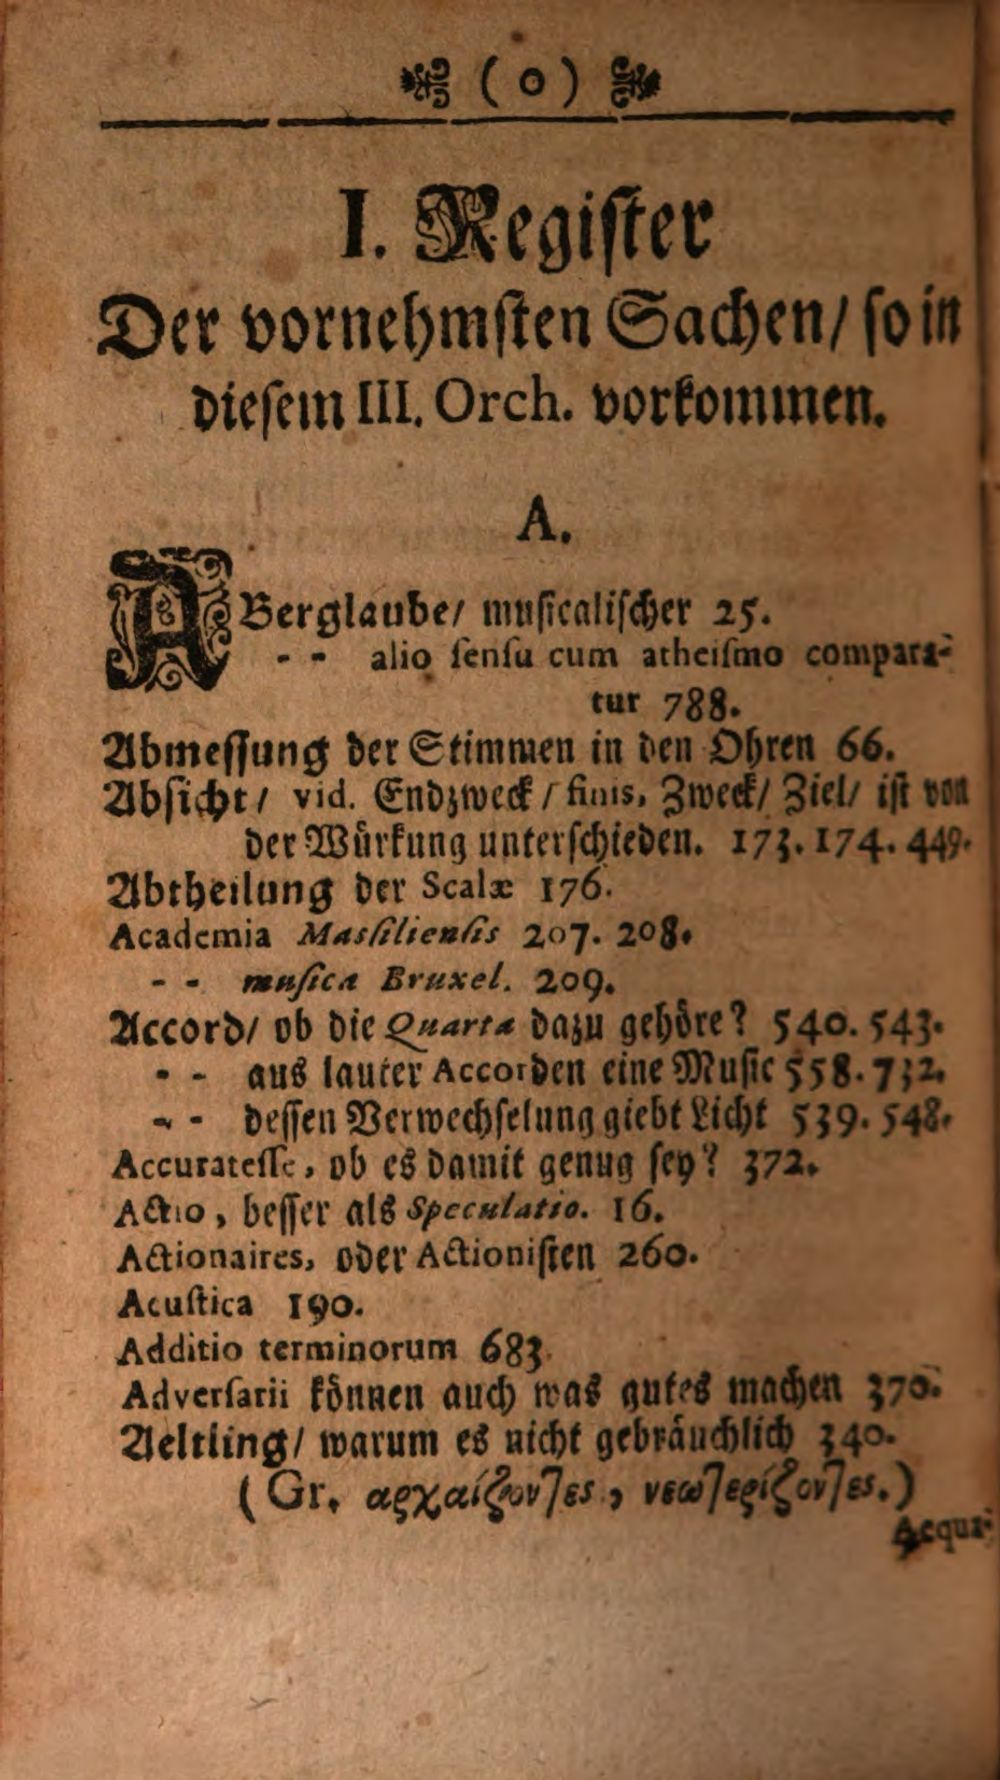 ( o )
I. Regiſter
Der vornehmſten Sachen/ ſo in
dieſem III. Orch. vorkommen.
A.
ABerglaube/ muſicaliſcher 25.
- - alio ſenſu cum atheiſmo compara-
tur 788.
Abmeſſung der Stimmen in den Ohren 66.
Abſicht/ vid. Endzweck / finis, Zweck/ Ziel/ iſt von
der Würkung unterſchieden. 173. 174. 449.
Abtheilung der Scalæ 176.
Academia Masſilienſis 207. 208.
- - muſica Bruxel. 209.
Accord/ ob die Quarta dazu gehöre? 540. 543.
- - aus lauter Accorden eine Muſic 558. 732.
- - deſſen Verwechſelung giebt Licht 539. 548.
Accurateſſe, ob es damit genug ſey? 372.
Actio, beſſer als Speculatio. 16.
Actionaires, oder Actioniſten 260.
Acuſtica 190.
Additio terminorum 683.
Adverſarii können auch was gutes machen 370.
Aeltling/ warum es nicht gebräuchlich 340.
(Gr. αρχαίζοντες, νεωτερίζοντες.)
Aequa-